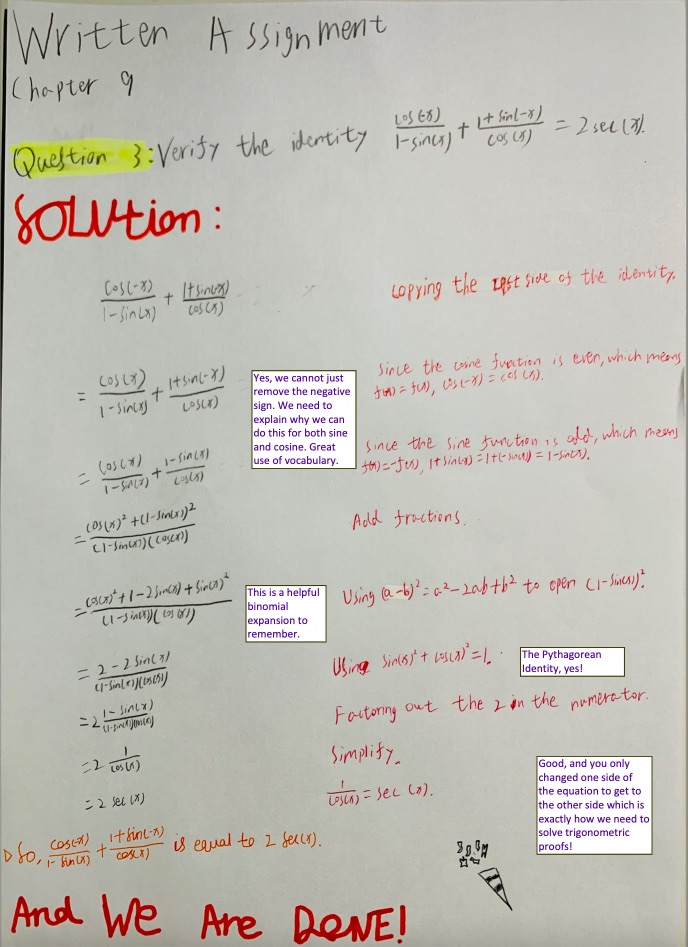 Written Assignment
Chapter 9
Question 3: Verify the identity cos(-x)/(1-sin(x)) + (1+sin(-x))/cos(x) = 2 sec(x).
SOLUtion:
cos(-x)/(1-sin(x)) + (1+sin(-x))/cos(x)
copying the left side of the identity.
= cos(x)/(1-sin(x)) + (1+sin(-x))/cos(x)
Yes, we cannot just
remove the negative
sign. We need to
explain why we can
do this for both sine
and cosine. Great
use of vocabulary.
Since the cosine function is even, which means
f(-x) = f(x), cos(-x) = cos(x).
= cos(x)/(1-sin(x)) + (1-sin(x))/cos(x)
Since the sine function is odd, which means
f(-x) = -f(x), 1+sin(-x) = 1+(-sin(x)) = 1-sin(x).
= (cos(x)² + (1-sin(x))²)/((1-sin(x))(cos(x)))
Add fractions.
= (cos(x)² + 1 - 2sin(x) + sin(x)²)/((1-sin(x))(cos(x)))
This is a helpful
binomial
expansion to
remember.
Using (a-b)² = a² - 2ab + b² to open (1-sin(x))².
= (2 - 2sin(x))/((1-sin(x))(cos(x)))
Using sin(x)² + cos(x)² = 1.
The Pythagorean
Identity, yes!
= 2 (1-sin(x))/((1-sin(x))(cos(x)))
Factoring out the 2 in the numerator.
= 2 1/cos(x)
Simplify.
= 2 sec(x)
1/cos(x) = sec(x).
Good, and you only
changed one side of
the equation to get to
the other side which is
exactly how we need to
solve trigonometric
proofs!
So, cos(-x)/(1-sin(x)) + (1+sin(-x))/cos(x) is equal to 2 sec(x).
And We Are DONE!